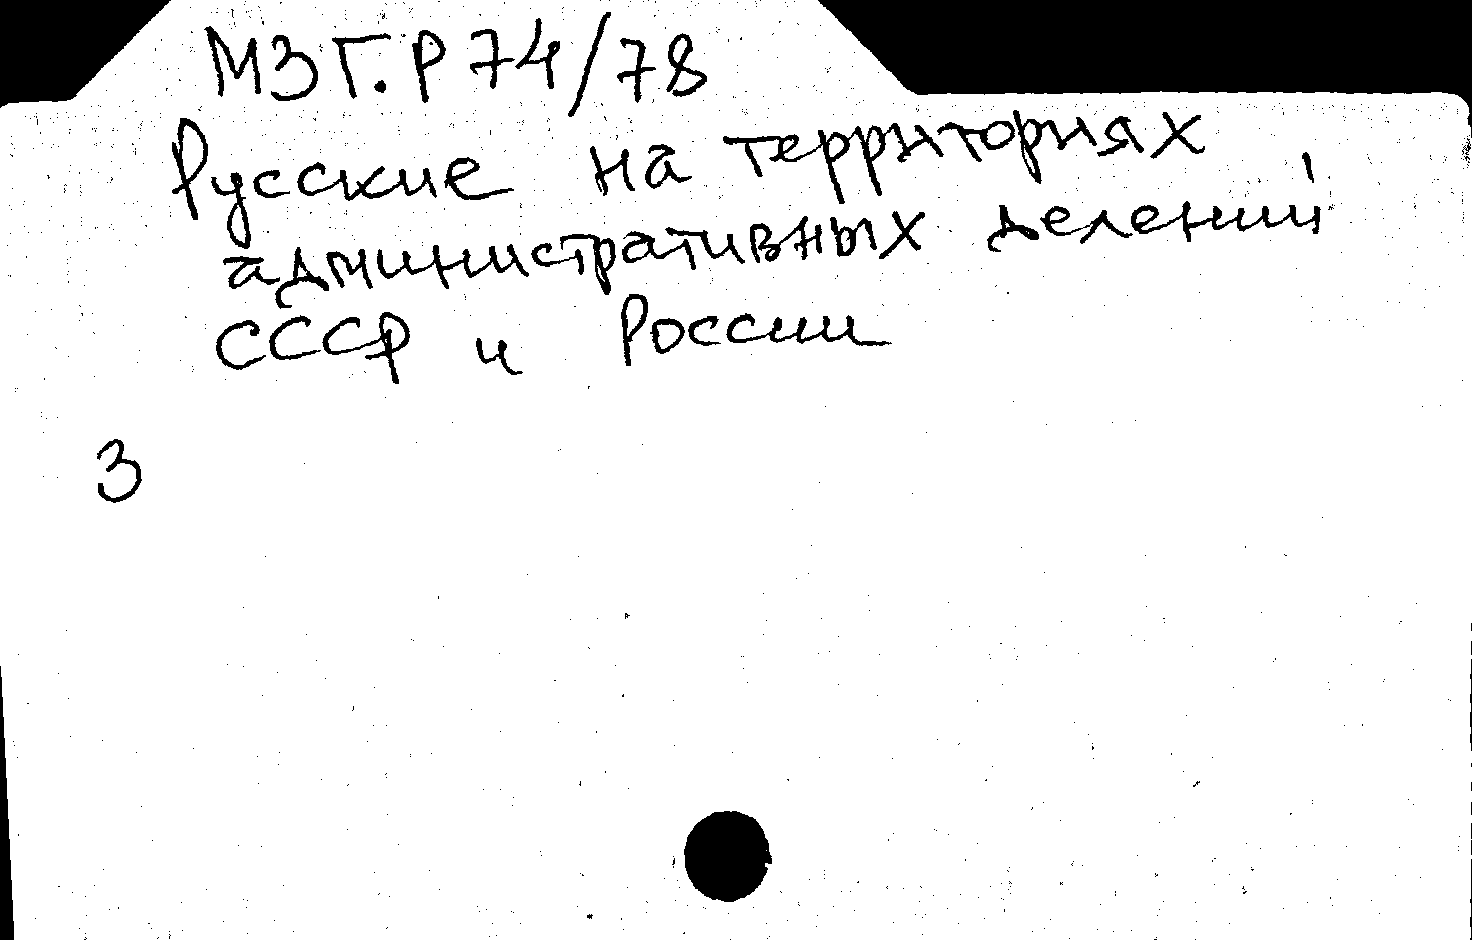 МЗГ.Р74/78
Русские на территориях
административных делений
СССР и России
3